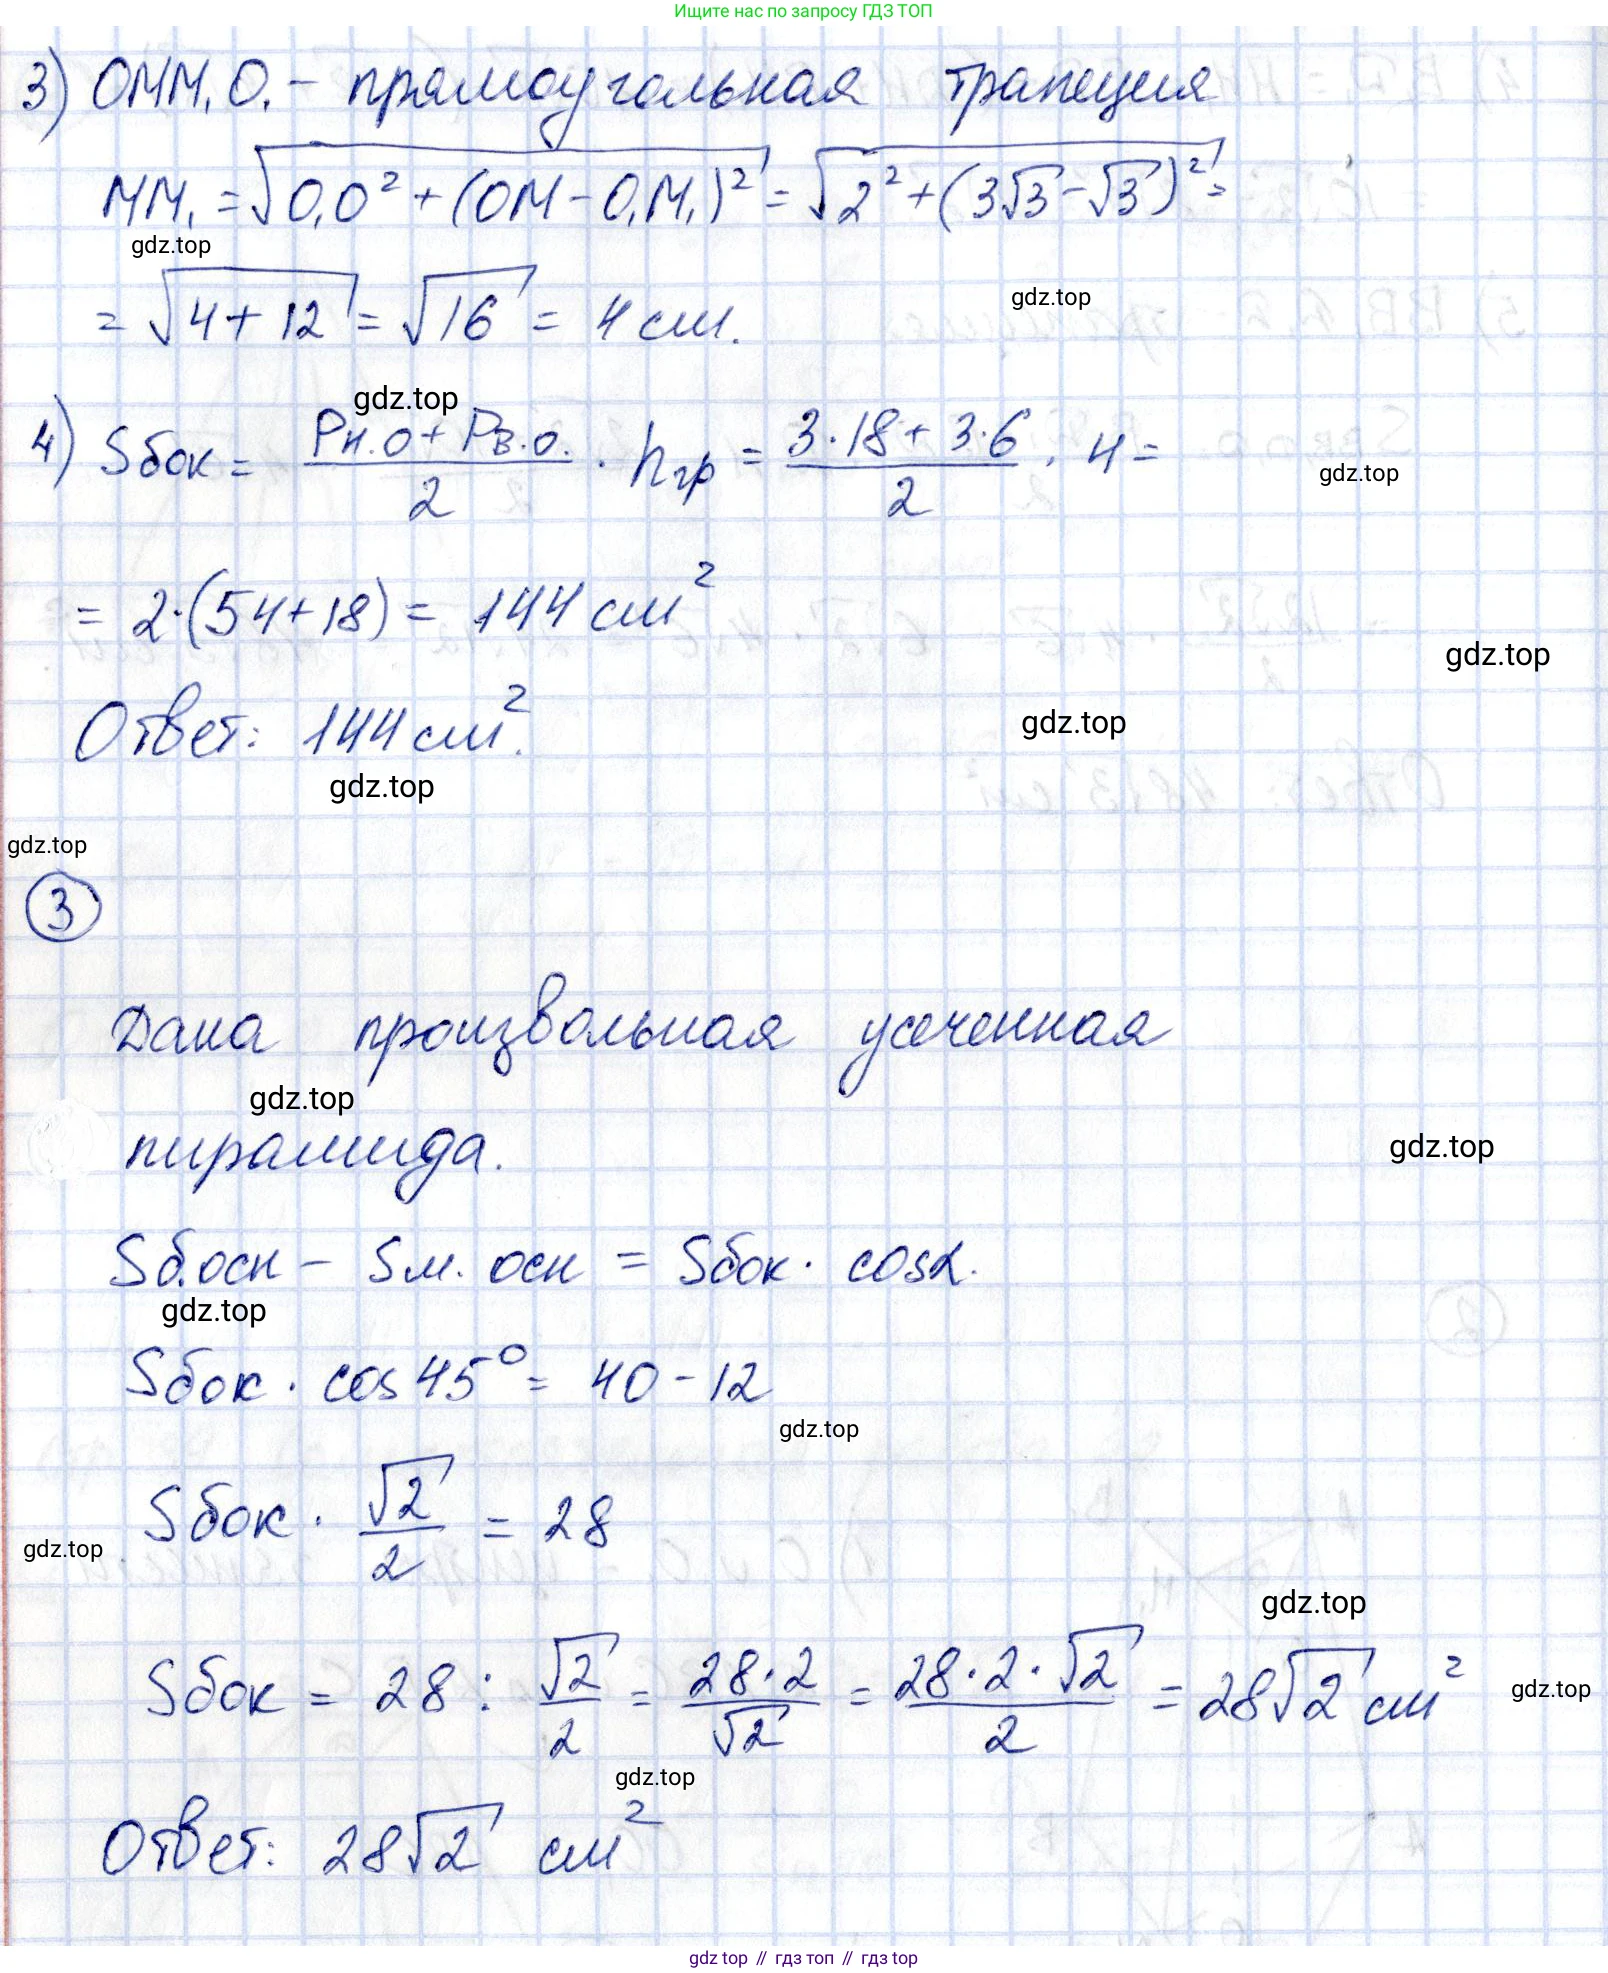 Ищите нас по запросу ГДЗ ТОП
3) OMM₁O₁ - прямоугольная трапеция
MM₁ = √(O₁O² + (OM - O₁M₁)²) = √(2² + (3√3 - √3)²) =
gdz.top
= √(4 + 12) = √16 = 4 см.
gdz.top
gdz.top
4) Sбок = (Pн.о + Pв.о.)/2 · hгр = (3·18 + 3·6)/2 · 4 =
gdz.top
= 2·(54 + 18) = 144 см²
gdz.top
Ответ: 144 см².
gdz.top
gdz.top
gdz.top
3
Дана произвольная усеченная
gdz.top
пирамида.
gdz.top
Sб.осн - Sм. осн = Sбок · cosα.
gdz.top
Sбок · cos 45° = 40 - 12
gdz.top
Sбок · √2/2 = 28
gdz.top
gdz.top
Sбок = 28 : √2/2 = 28·2/√2 = 28·2·√2/2 = 28√2 см²
gdz.top
gdz.top
Ответ: 28√2 см²
gdz top // гдз топ // гдз top